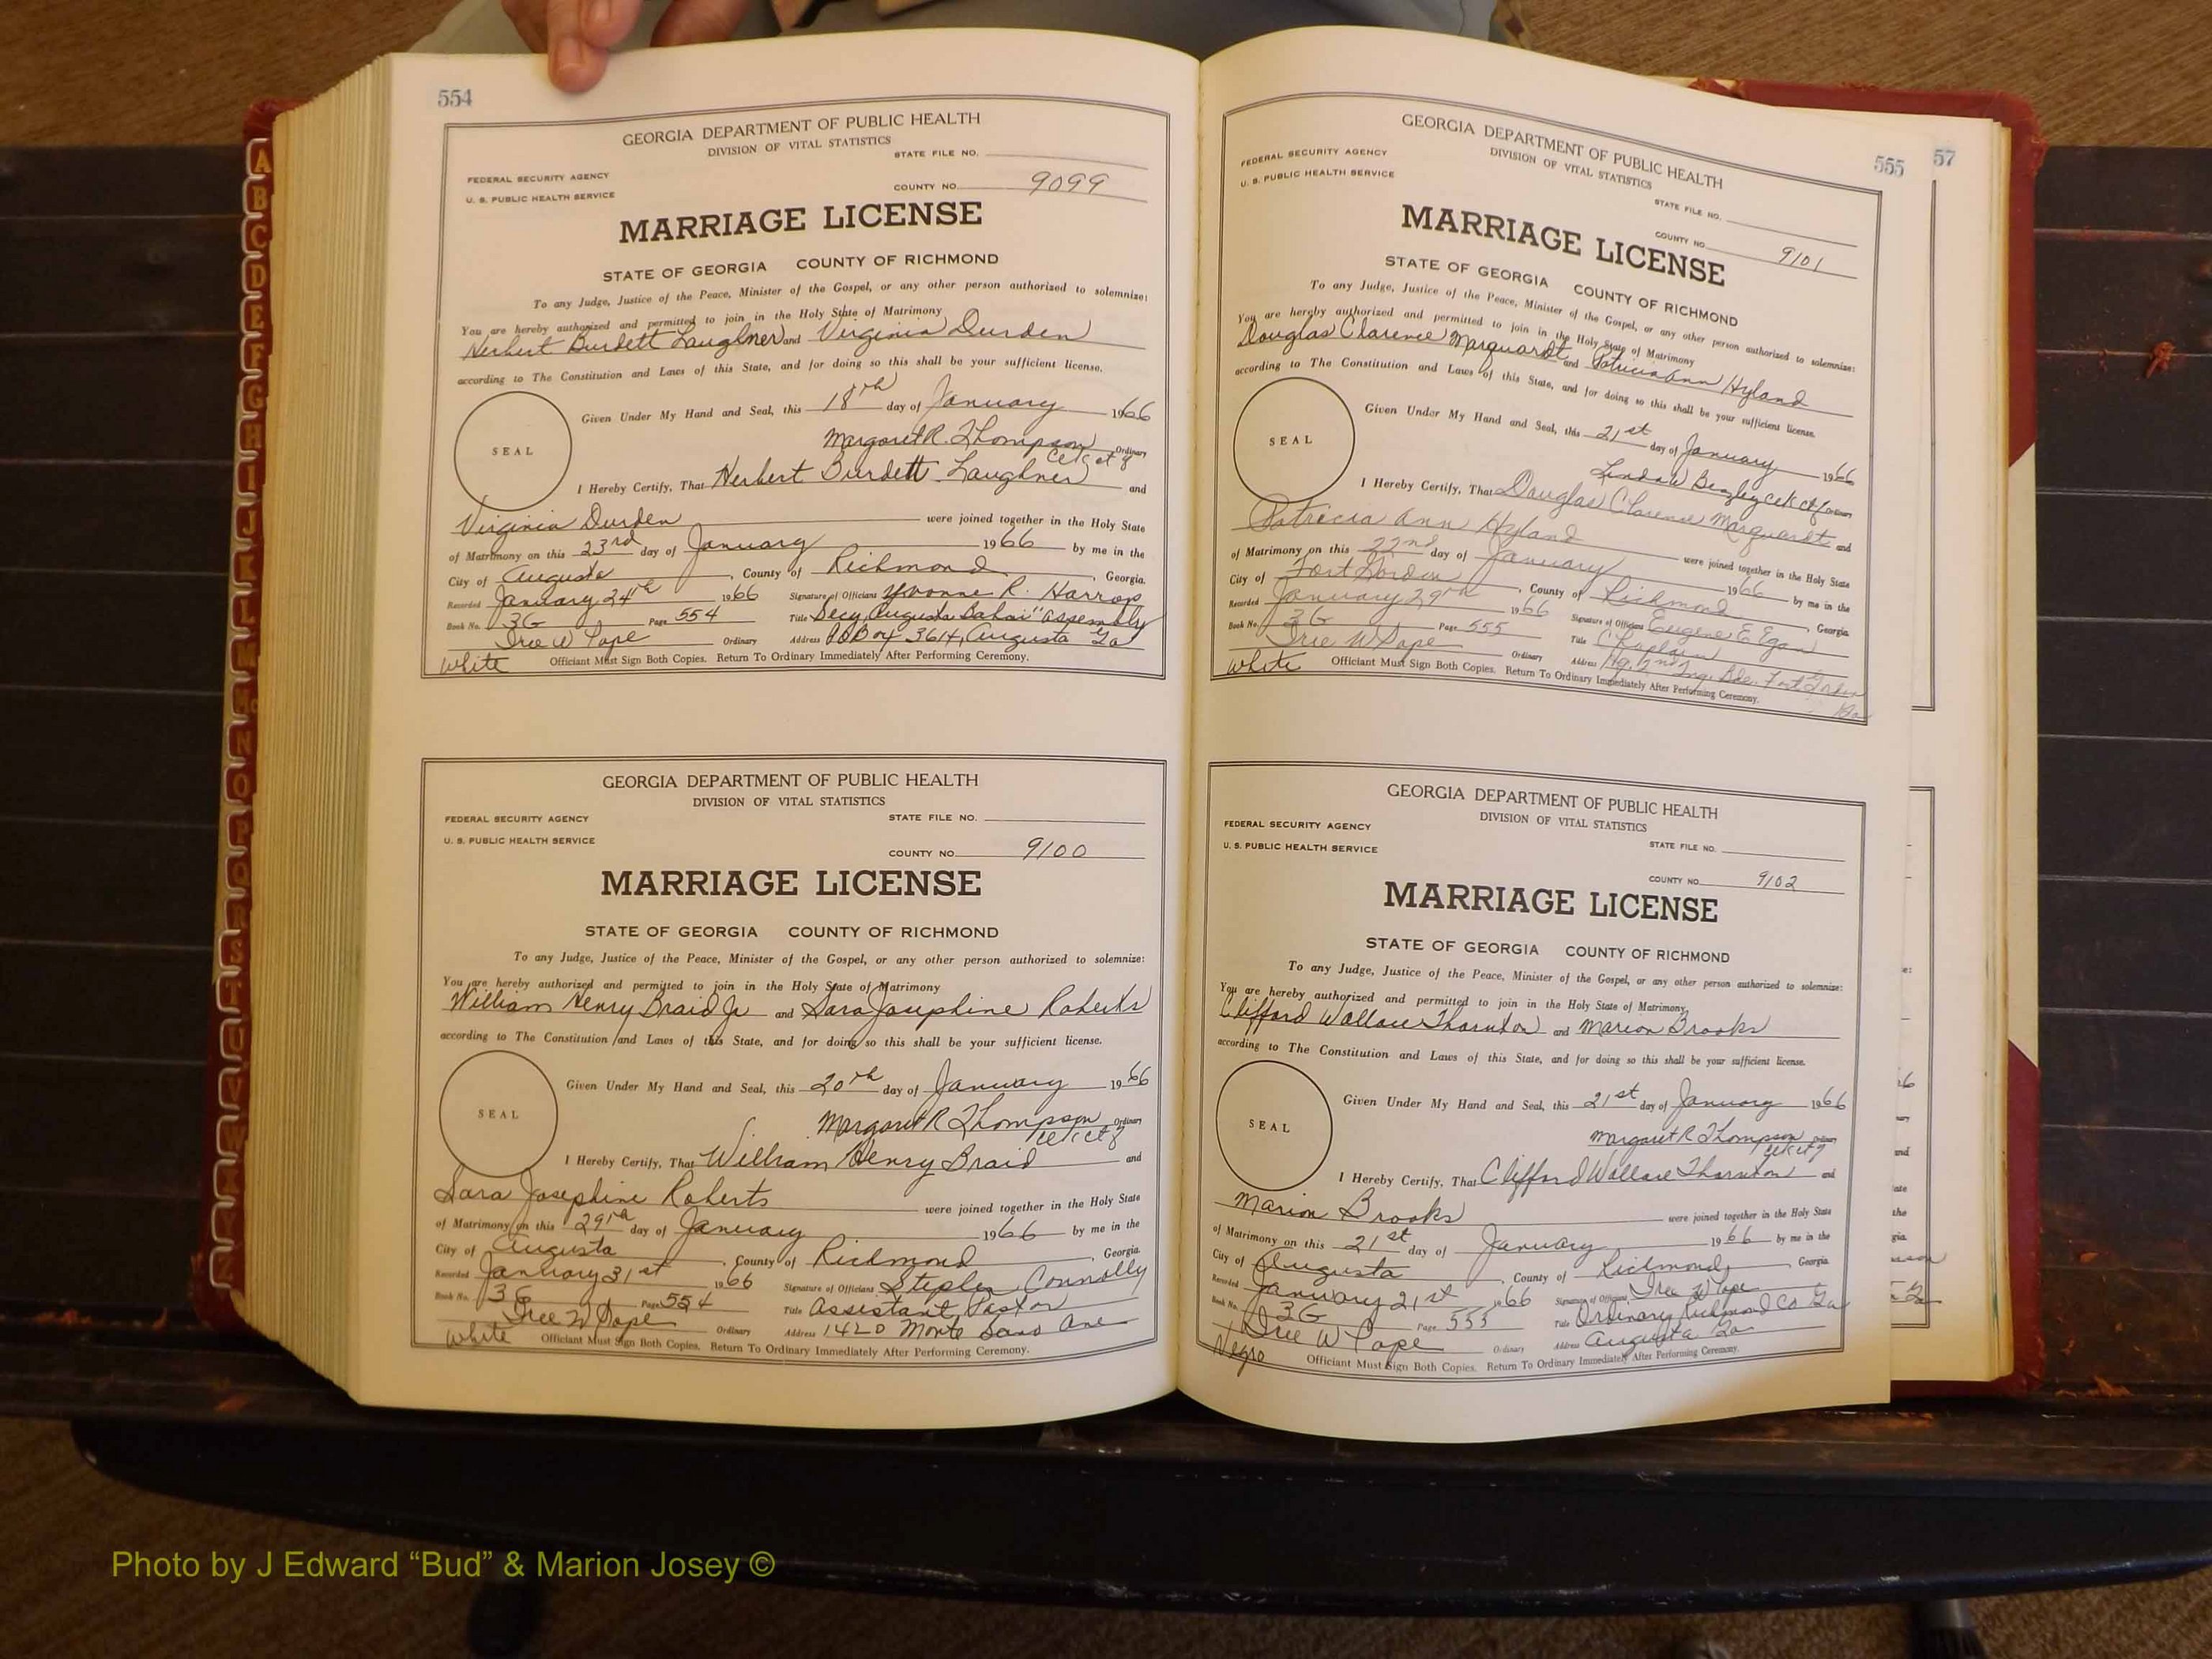 554
GEORGIA DEPARTMENT OF PUBLIC HEALTH
DIVISION OF VITAL STATISTICS
STATE FILE NO.
FEDERAL SECURITY AGENCY
U. S. PUBLIC HEALTH SERVICE
COUNTY NO. 9099
MARRIAGE LICENSE
STATE OF GEORGIA COUNTY OF RICHMOND
To any Judge, Justice of the Peace, Minister of the Gospel, or any other person authorized to solemnize:
You are hereby authorized and permitted to join in the Holy State of Matrimony
Herbert Burdett Laughner and Virginia Durden
according to The Constitution and Laws of this State, and for doing so this shall be your sufficient license.
SEAL
Given Under My Hand and Seal, this 18th day of January 1966
Margaret R. Thompson Ordinary
I Hereby Certify, That Herbert Burdett Laughner and
Virginia Durden were joined together in the Holy State
of Matrimony on this 23rd day of January 1966 by me in the
City of Augusta, County of Richmond, Georgia.
Recorded January 24th 1966 Signature of Officiant Yvonne R. Harrop
Book No. 3G Page 554 Title Secy, Augusta Bahai "assembly
Tree W Pope Ordinary Address P.O Box 3614, Augusta Ga
white Officiant Must Sign Both Copies. Return To Ordinary Immediately After Performing Ceremony.
GEORGIA DEPARTMENT OF PUBLIC HEALTH
DIVISION OF VITAL STATISTICS
FEDERAL SECURITY AGENCY STATE FILE NO.
U. S. PUBLIC HEALTH SERVICE
COUNTY NO. 9100
MARRIAGE LICENSE
STATE OF GEORGIA COUNTY OF RICHMOND
To any Judge, Justice of the Peace, Minister of the Gospel, or any other person authorized to solemnize:
You are hereby authorized and permitted to join in the Holy State of Matrimony
William Henry Braid Jr and Sara Josephine Roberts
according to The Constitution and Laws of this State, and for doing so this shall be your sufficient license.
SEAL
Given Under My Hand and Seal, this 20th day of January 1966
Margaret R Thompson Ordinary
I Hereby Certify, That William Henry Braid and
Sara Josephine Roberts were joined together in the Holy State
of Matrimony on this 29th day of January 1966 by me in the
City of Augusta, County of Richmond, Georgia
Recorded January 31st 1966 Signature of Officiant Stephen Connolly
Book No. 3G Page 554 Title Assistant Pastor
Tree W Pope Ordinary Address 1420 Monte Sano Ave
white Officiant Must Sign Both Copies. Return To Ordinary Immediately After Performing Ceremony.
555
57
GEORGIA DEPARTMENT OF PUBLIC HEALTH
DIVISION OF VITAL STATISTICS
FEDERAL SECURITY AGENCY
U. S. PUBLIC HEALTH SERVICE
STATE FILE NO.
COUNTY NO. 9101
MARRIAGE LICENSE
STATE OF GEORGIA COUNTY OF RICHMOND
To any Judge, Justice of the Peace, Minister of the Gospel, or any other person authorized to solemnize:
You are hereby authorized and permitted to join in the Holy State of Matrimony
Douglas Clarence Marquardt and Patricia Ann Hyland
according to The Constitution and Laws of this State, and for doing so this shall be your sufficient license.
SEAL
Given Under My Hand and Seal, this 21st day of January 1966
Linda W Beazley Ordinary
I Hereby Certify, That Douglas Clarence Marquardt and
Patricia Ann Hyland were joined together in the Holy State
of Matrimony on this 22nd day of January 1966 by me in the
City of Fort Gordon, County of Richmond, Georgia
Recorded January 29th 1966 Signature of Officiant Eugene E. Egan
Book No. 3G Page 555 Title Chaplain
Tree W Pope Ordinary Address Hq. 2nd Tng. Bde. Fort Gordon Ga
white Officiant Must Sign Both Copies. Return To Ordinary Immediately After Performing Ceremony.
GEORGIA DEPARTMENT OF PUBLIC HEALTH
DIVISION OF VITAL STATISTICS
FEDERAL SECURITY AGENCY
U. S. PUBLIC HEALTH SERVICE
STATE FILE NO.
COUNTY NO. 9102
MARRIAGE LICENSE
STATE OF GEORGIA COUNTY OF RICHMOND
To any Judge, Justice of the Peace, Minister of the Gospel, or any other person authorized to solemnize:
You are hereby authorized and permitted to join in the Holy State of Matrimony
Clifford Wallace Thornton and Marion Brooks
according to The Constitution and Laws of this State, and for doing so this shall be your sufficient license.
SEAL
Given Under My Hand and Seal, this 21st day of January 1966
Margaret R Thompson Ordinary
I Hereby Certify, That Clifford Wallace Thornton and
Marion Brooks were joined together in the Holy State
of Matrimony on this 21st day of January 1966 by me in the
City of Augusta, County of Richmond, Georgia
Recorded January 21st 1966 Signature of Officiant Tree W Pope
Book No. 3G Page 555 Title Ordinary, Richmond Co Ga
Tree W Pope Ordinary Address Augusta Ga
Negro Officiant Must Sign Both Copies. Return To Ordinary Immediately After Performing Ceremony.
A
B
C
D
E
F
G
H
I
J
K
L
M
Mc
N
O
P
Q
R
S
T
U
V
W
Y
Z
Photo by J Edward “Bud” & Marion Josey ©